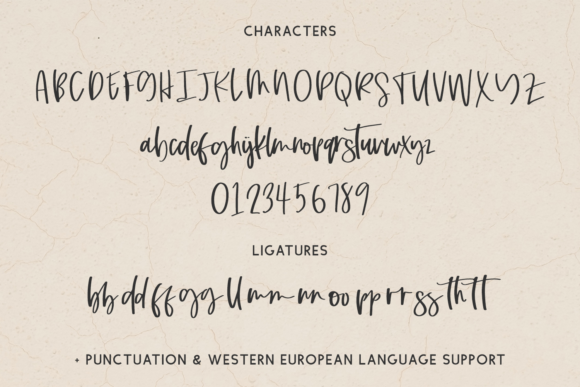 CHARACTERS
ABCDEFGHIJKLMNOPQRSTUVWXYZ
abcdefghijklmnopqrstuvwxyz
0123456789
LIGATURES
bb dd ff gg ll mm nn oo pp rr ss th tt
+ PUNCTUATION & WESTERN EUROPEAN LANGUAGE SUPPORT